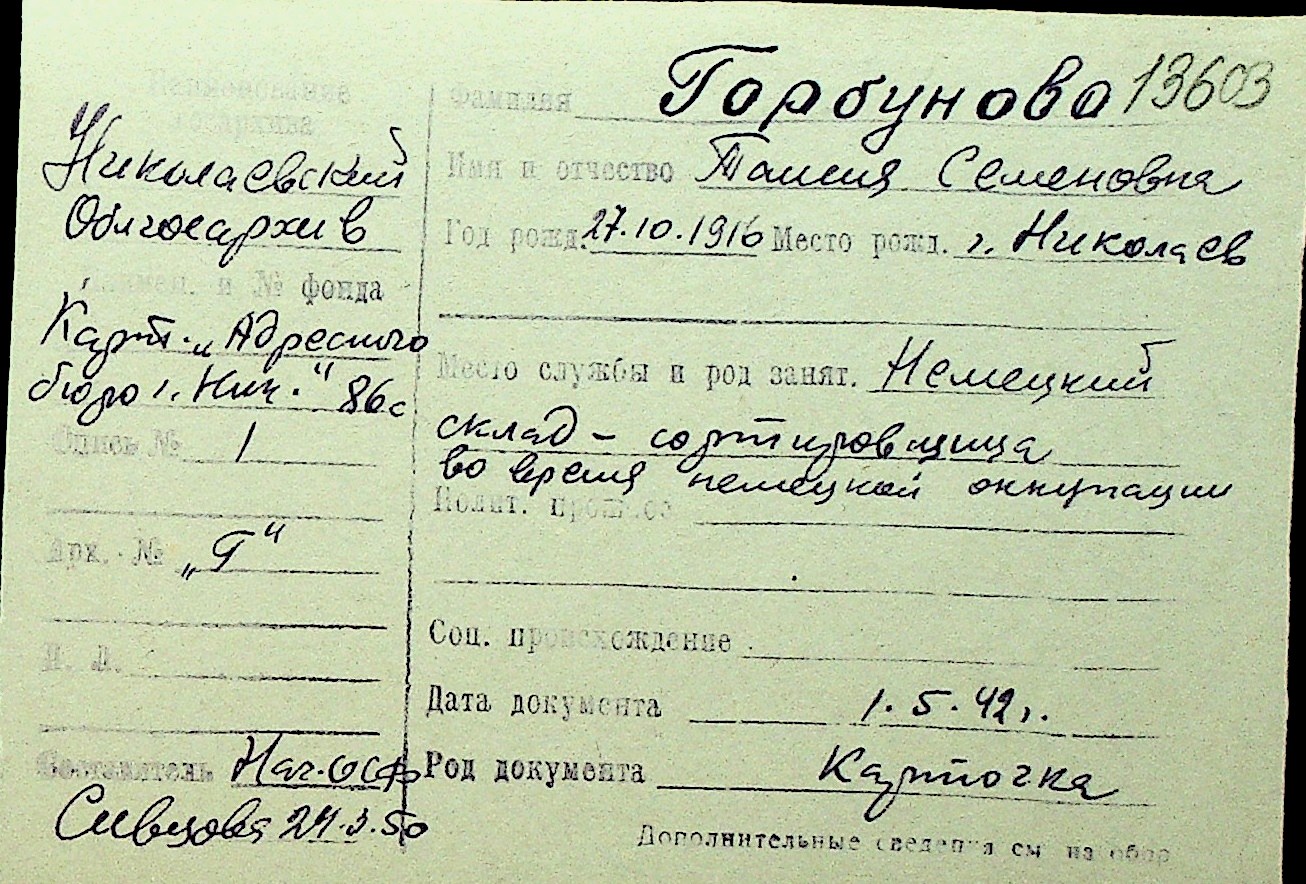 Наименование
госархива
Николаевский
Облгосархив
Наимен. и № фонда
Карт. „Адресного
бюро г. Ник." 86с
Опись № 1
Арх. № „Г"
П. Л.
Составитель Нач. ОСФ
Сивцова 24.3.50
Фамилия Горбунова 13603
Имя и отчество Таисия Семеновна
Год рожд. 27.10.1916 Место рожд. г. Николаев
Место службы и род занят. Немецкий
склад – сортировщица
во время немецкой оккупации
Полит. прошлое
Соц. происхождение
Дата документа 1.5.42г.
Род документа Карточка
Дополнительные сведения см на обор